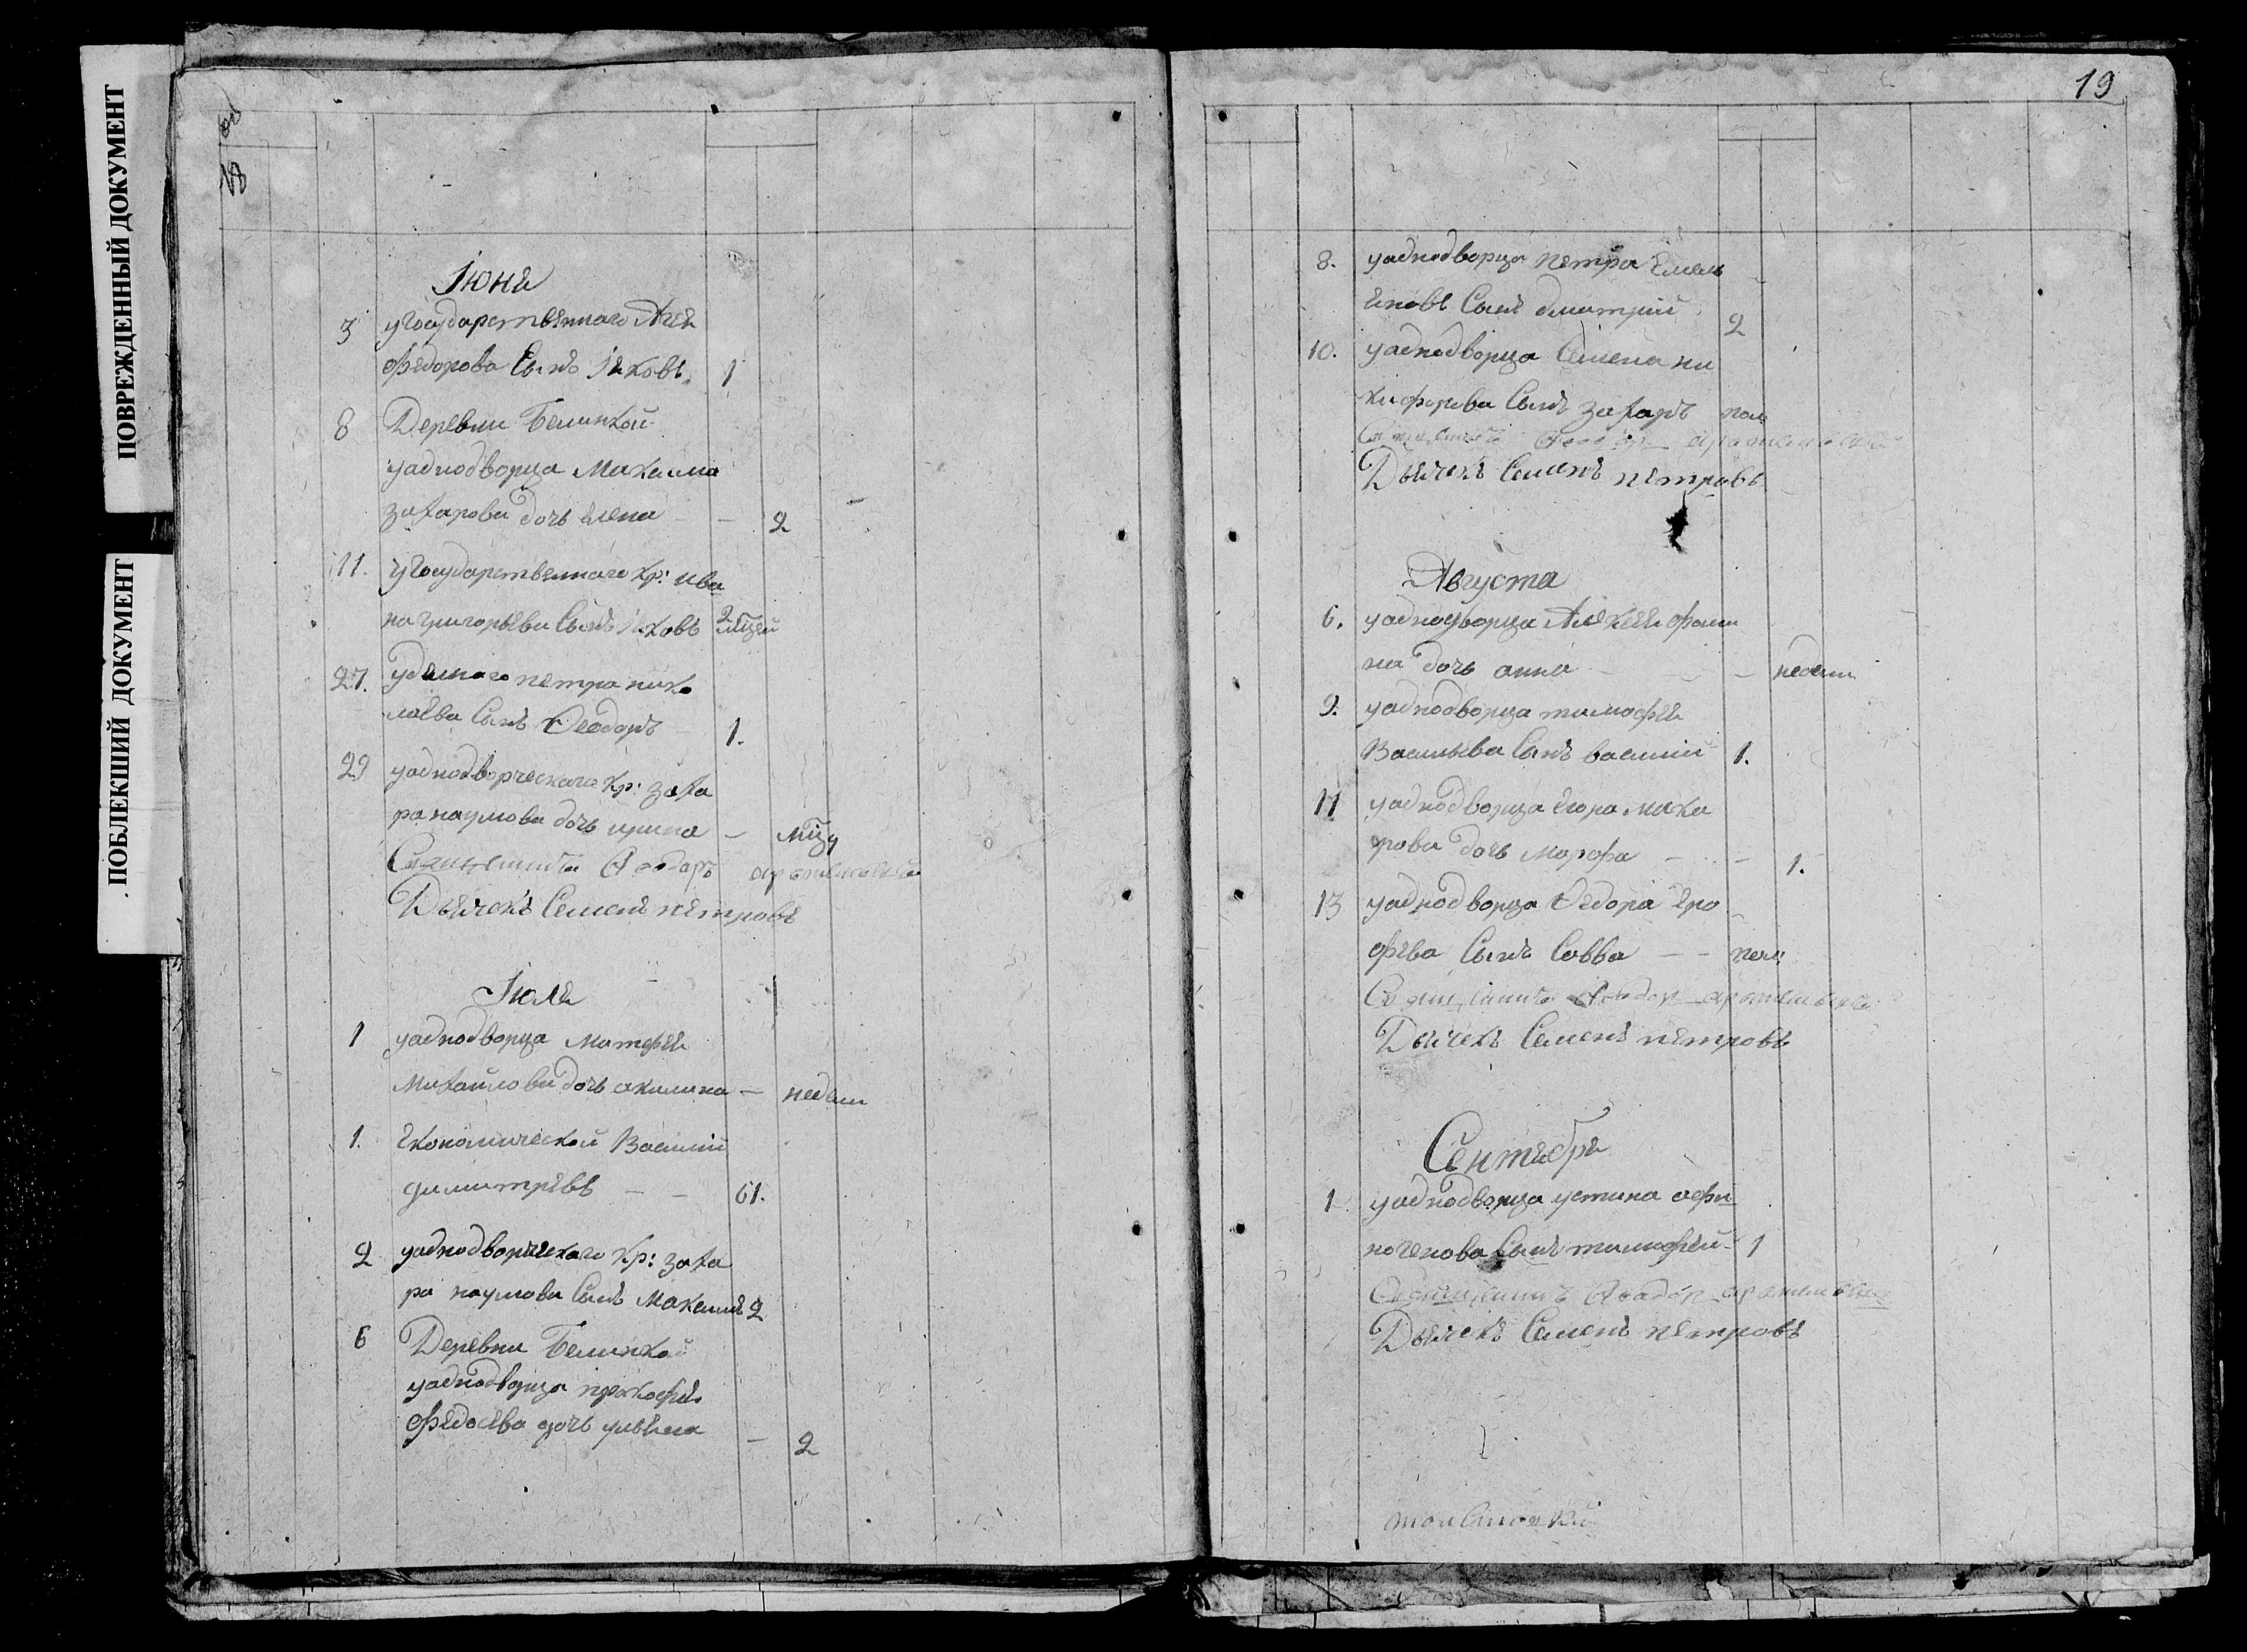 ПОВРЕЖДЕННЫЙ ДОКУМЕНТ
ПОБЛЕКШИЙ ДОКУМЕНТ
Іюня
3 угосударственнаго Агея
федорова Сынъ Іяковъ 1
8 Деревни Белинкой
уаднодворца Максима
захарова дочь елена — 2
11. угосударственнаго кр: ива
на григорьева Сынъ Іяковъ 2 мцей
27. уделнаго петра нико
лаева Сынъ Ѳеодоръ 1.
29 уаднодворческаго кр: заха
ра наумова дочь ирина — мцу
Священникъ Ѳеодоръ
Дьячекъ Семенъ петровъ
Іюля
1 уаднодворца Матфея
михайлова дочь акилина — недели
1. Економической Василий
димитревъ — — 61.
2 уаднодворческаго кр: заха
ра наумова Сынъ Максимъ 2
6 Деревни Белинкой
уаднодворца прокофия
федосева дочь ульяна — 2
19
8. уаднодворца петра Емель
яновъ Сынъ дмитрий 2
10. уаднодворца Семена ни
кифорова Сынъ захаръ пол
Священникъ Ѳеодоръ
Дьячекъ Семенъ петровъ
Августа
6. уаднодворца Алексея фоми
на дочь анна — недели
9. уаднодворца тимофея
Васильева Сынъ василий 1.
11 уаднодворца егора мака
рова дочь марфа — — 1.
13 уаднодворца Ѳедора еро
фева Сынъ Савва — — пол:
Священникъ Ѳеодоръ
Дьячекъ Семенъ петровъ
Сентября
1 уаднодворца устина афи
ногенова Сынъ тимофей 1
Священникъ Ѳеодоръ
Дьячекъ Семенъ петровъ